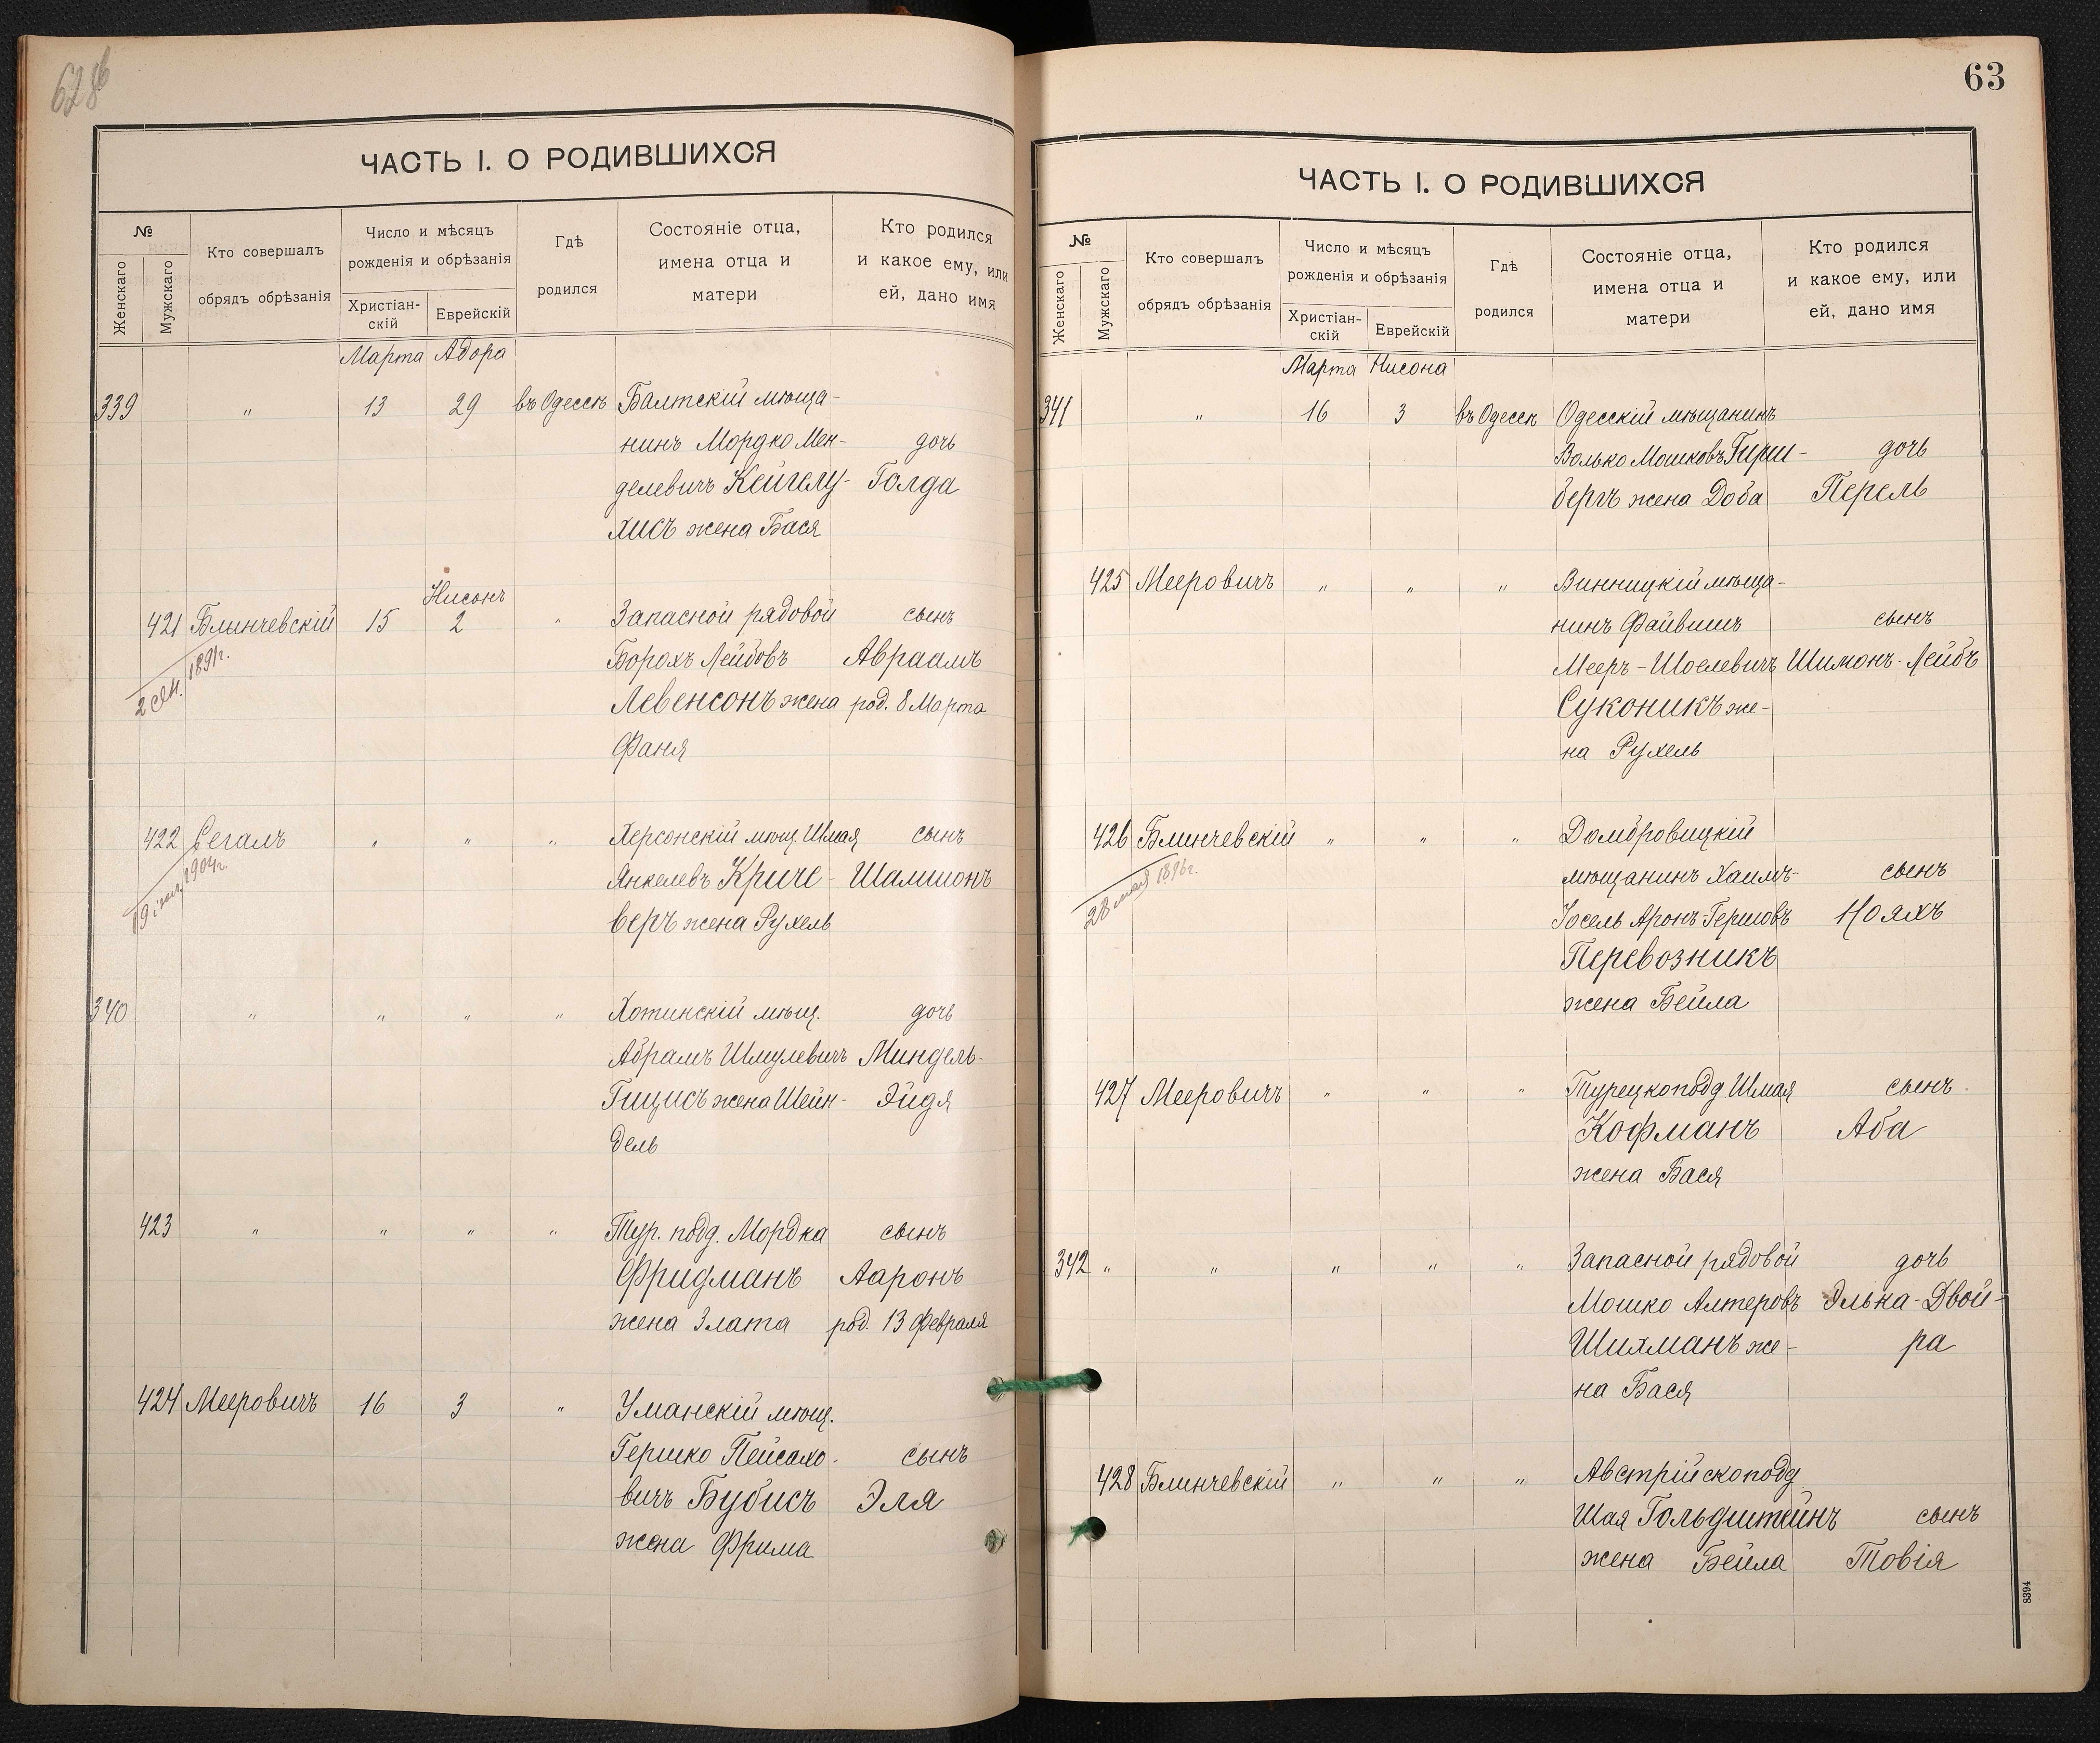 62об
ЧАСТЬ I. О РОДИВШИХСЯ
№
Женскаго
Мужскаго
Кто совершалъ
обрядъ обрѣзанія
Число и мѣсяцъ
рожденія и обрѣзанія
Христіан-
скій
Еврейскій
Гдѣ
родился
Состояніе отца,
имена отца и
матери
Кто родился
и какое ему, или
ей, дано имя
Марта Адора
339 " 13 29 въ Одессѣ Балтскій мѣща-
нинъ Мордко Мен- дочь
делевичъ Кейгелу- Голда
хисъ жена Бася
Нисонъ
421 Блинчевскій 15 2 " Запасной рядовой сынъ
2 сен. 1891г.
Борохъ Лейбовъ Авраамъ
Левенсонъ жена род. 8 Марта
Фаня
422 Сегалъ " " " Херсонскій мѣщ. Шмая сынъ
19 1904г.
Янкелевъ Криче- Шамшонъ
веръ жена Рухель
340 " " " " Хотинскій мѣщ. дочь
Абрамъ Шмулевичъ Миндель-
Гицисъ жена Шейн- Эйдя
дель
423 " " " " Тур. подд. Мордка сынъ
Фридманъ Ааронъ
жена Злата род. 13 Февраля
424 Мееровичъ 16 3 " Уманскій мѣщ.
Гершко Пейсахо- сынъ
вичъ Бубисъ Эля
жена Фрима
63
ЧАСТЬ I. О РОДИВШИХСЯ
№
Женскаго
Мужскаго
Кто совершалъ
обрядъ обрѣзанія
Число и мѣсяцъ
рожденія и обрѣзанія
Христіан-
скій
Еврейскій
Гдѣ
родился
Состояніе отца,
имена отца и
матери
Кто родился
и какое ему, или
ей, дано имя
Марта Нисона
341 " 16 3 въ Одессѣ Одесскій мѣщанинъ
Волько Мошковъ Гирш- дочь
бергъ жена Доба Перель
425 Мееровичъ " " " Винницкій мѣща-
нинъ Файвишъ сынъ
Мееръ-Шоелевичъ Шимонъ-Лейбъ
Суконикъ же-
на Рухель
426 Блинчевскій " " " Домбровицкій
28 мая 1896г.
мѣщанинъ Хаимъ- сынъ
Іосель Аронъ Гершовъ Нояхъ
Перевозникъ
жена Бейла
427 Мееровичъ " " " Турецкоподд. Шмая сынъ
Кофманъ Аба
жена Бася
342 " " " " " Запасной рядовой дочь
Мошко Алтеровъ Элька-Двой-
Шихманъ же- ра
на Бася
428 Блинчевскій " " " Австрійскоподд
Шая Гольдштейнъ сынъ
жена Бейла Товія
8394